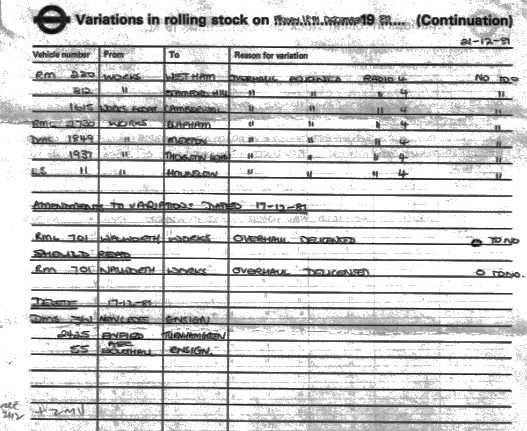 Variations in rolling stock on 19 81... (Continuation)
21-12-81
Vehicle number From To Reason for variation
RM 220 WORKS WESTHAM OVERHAUL DELICENSED RADIO 4 NO TDO
212 " STAMFORD HILL " " " 4 "
1615 WORKS CAMBERWELL " " " 4 "
2730 WORKS " " " 4 "
DMS 1849 " MERTON " " " 4 "
1937 " THORNTON HEATH " " " 4 "
LS 11 " HOUNSLOW " " " 4 "
AMENDMENTS TO VARIATIONS DATED 17-12-81
RML 701 WALWORTH WORKS OVERHAUL DELICENSED TDNO
SHOULD READ
RM 701 WALWORTH WORKS OVERHAUL DELICENSED O TDNO.
DELETE 17-12-81
DMS ENSIGN
2425 ENFIELD TURNHAM GREEN
55 AEC SOUTHALL ENSIGN.